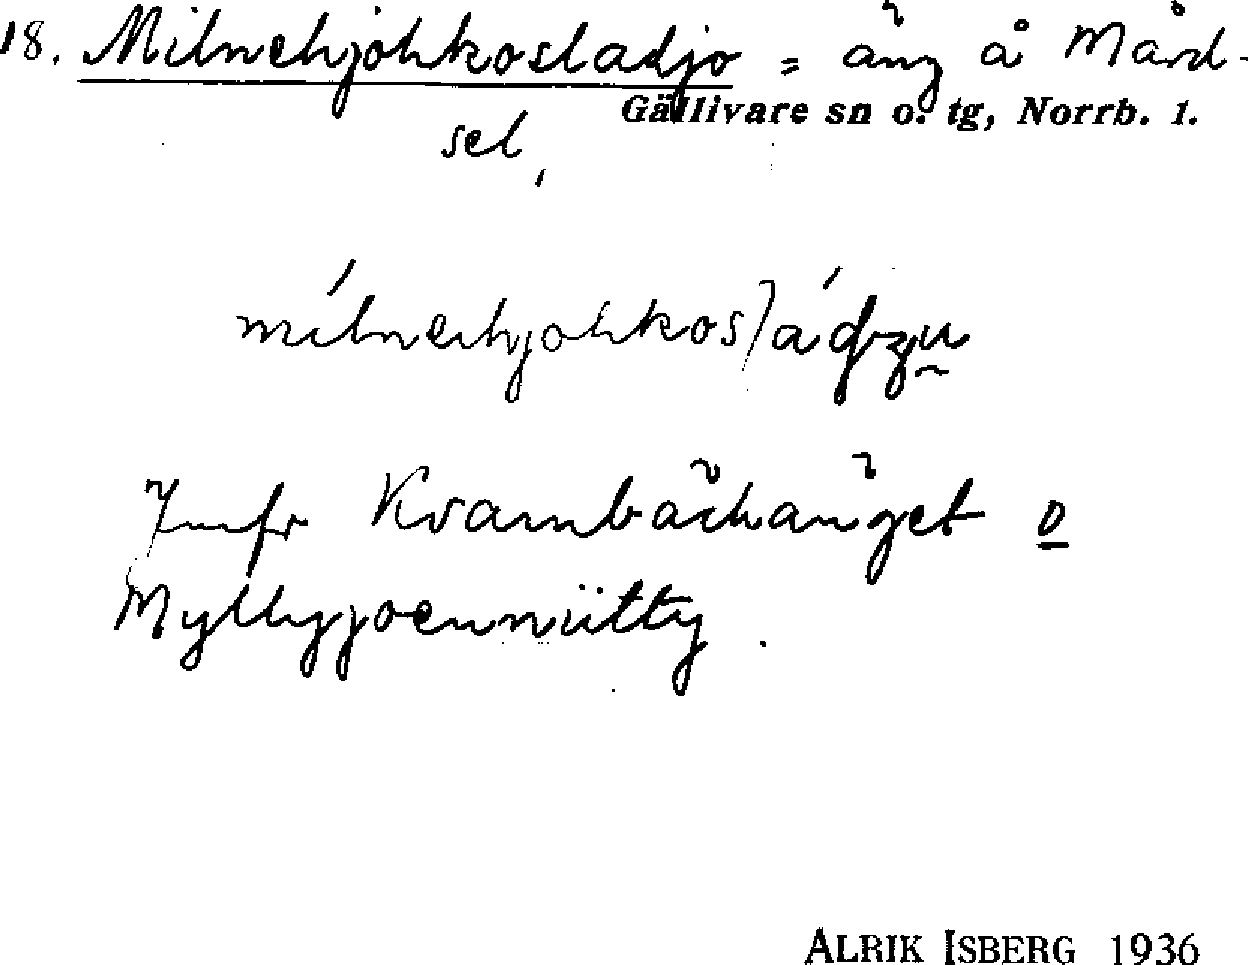 18. Milnehjohkosladjo = äng å Mård-
Gällivare sn o. tg, Norrb. 1.
sel,
Jmfr Kvarnbäckänget o
Myllyjoenniitty.
ALRIK ISBERG 1936